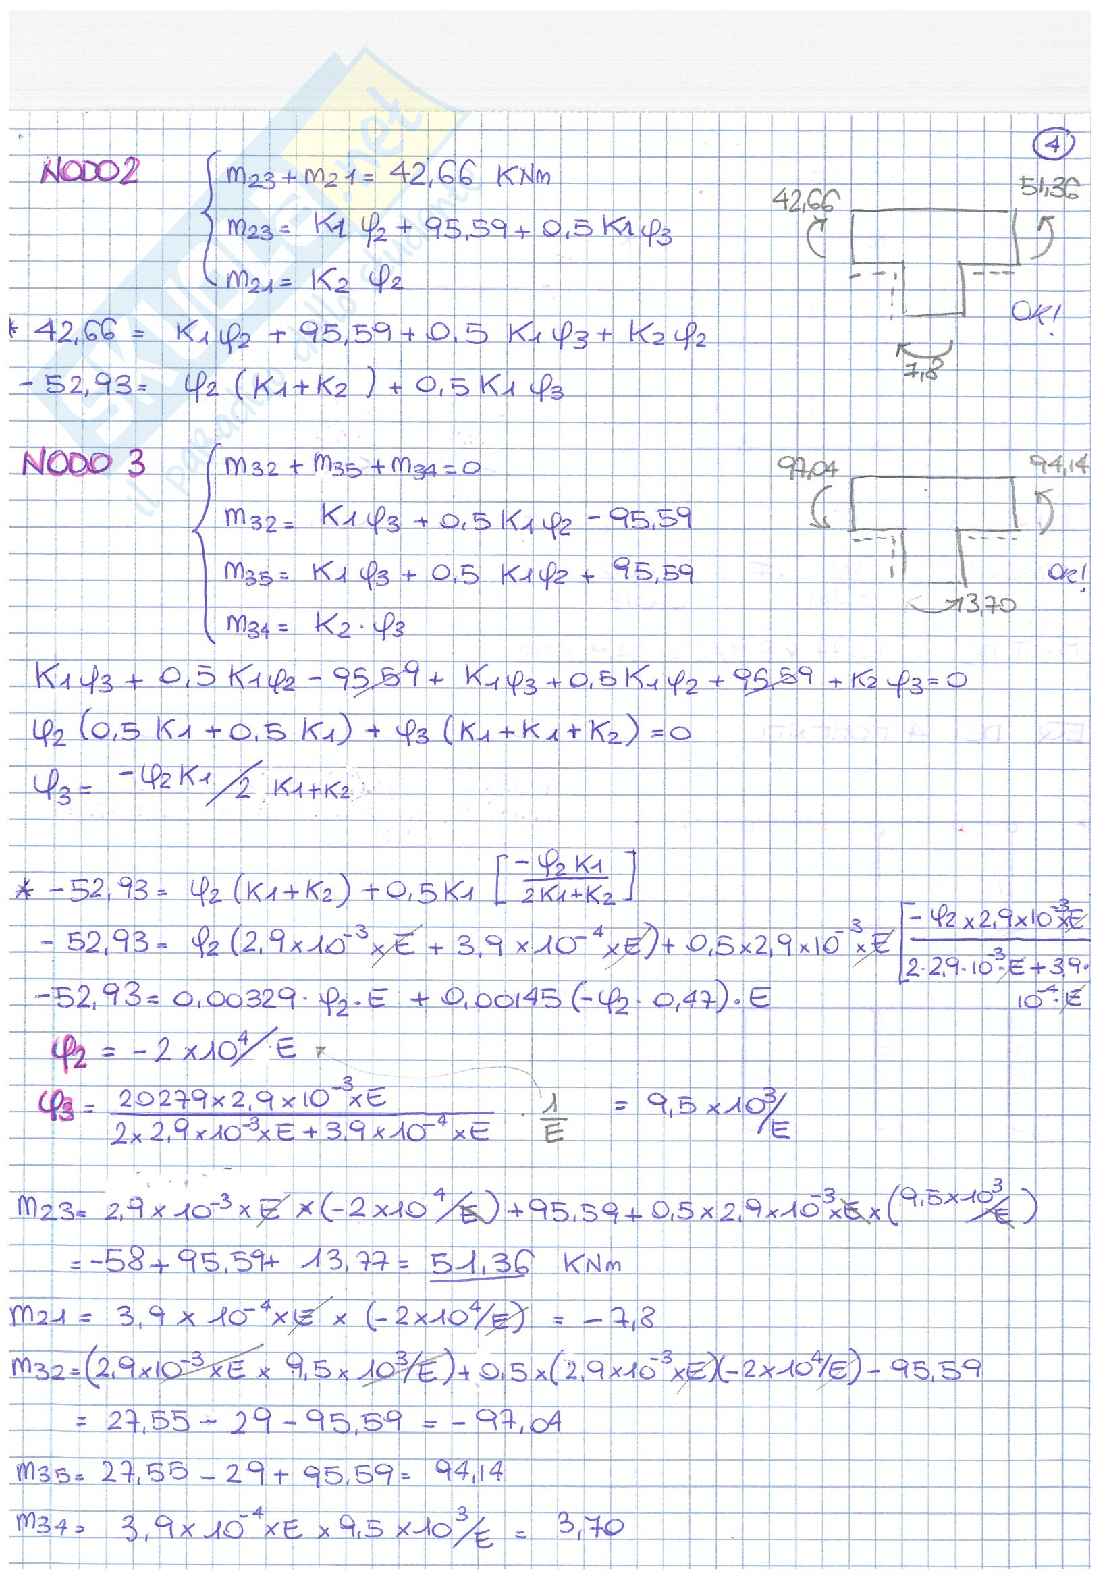 4
NODO 2
m23 + m21 = 42,66 KNm
m23 = K1 φ2 + 95,59 + 0,5 K1 φ3
m21 = K2 φ2
42,66
51,36
OK!
7,8
* 42,66 = K1 φ2 + 95,59 + 0,5 K1 φ3 + K2 φ2
- 52,93 = φ2 (K1 + K2) + 0,5 K1 φ3
NODO 3
m32 + m35 + m34 = 0
m32 = K1 φ3 + 0,5 K1 φ2 - 95,59
m35 = K1 φ3 + 0,5 K1 φ2 + 95,59
m34 = K2 · φ3
97,04
94,14
OK!
13,70
K1 φ3 + 0,5 K1 φ2 - 95,59 + K1 φ3 + 0,5 K1 φ2 + 95,59 + K2 φ3 = 0
φ2 (0,5 K1 + 0,5 K1) + φ3 (K1 + K1 + K2) = 0
φ3 = -φ2 K1 / 2 K1 + K2
* - 52,93 = φ2 (K1 + K2) + 0,5 K1 [-φ2 K1 / 2K1 + K2]
- 52,93 = φ2 (2,9 x 10⁻³ x E + 3,9 x 10⁻⁴ x E) + 0,5 x 2,9 x 10⁻³ x E [- φ2 x 2,9 x 10⁻³ x E / 2 · 2,9 · 10⁻³ · E + 3,9 · 10⁻⁴ · E
- 52,93 = 0,00329 · φ2 · E + 0,00145 (-φ2 · 0,47) · E
φ2 = - 2 x 10⁴ / E
φ3 = 20279 x 2,9 x 10⁻³ x E / 2 x 2,9 x 10⁻³ x E + 3,9 x 10⁻⁴ x E · 1/E = 9,5 x 10³ / E
m23 = 2,9 x 10⁻³ x E x (-2 x 10⁴/E) + 95,59 + 0,5 x 2,9 x 10⁻³ x E x (9,5 x 10³/E)
= -58 + 95,59 + 13,77 = 51,36 KNm
m21 = 3,9 x 10⁻⁴ x E x (-2 x 10⁴/E) = - 7,8
m32 = (2,9 x 10⁻³ x E x 9,5 x 10³/E) + 0,5 x (2,9 x 10⁻³ x E)(-2 x 10⁴/E) - 95,59
= 27,55 - 29 - 95,59 = - 97,04
m35 = 27,55 - 29 + 95,59 = 94,14
m34 = 3,9 x 10⁻⁴ x E x 9,5 x 10³/E = 3,70